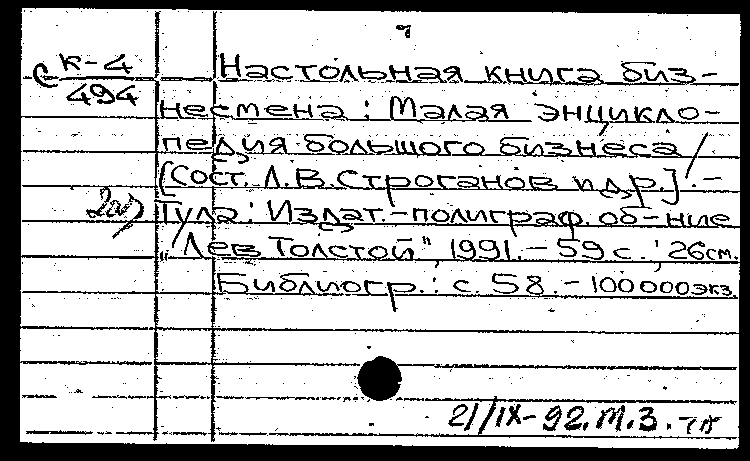 С К-4
494
Настольная книга биз-
несмена : Малая энцикло-
педия большого бизнеса /
[Сост. Л.В.Строганов и др.]. -
Тула : Издат.-полиграф. об-ние
„Лев Толстой", 1991. - 59 с. ; 26 см.
Библиогр.: с. 58. - 100000 экз.
21/IX-92. м.з.